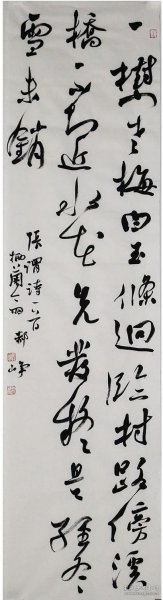 一樹寒梅白玉條迴臨村路傍溪
橋不知近水花先發疑是經冬
雪未銷
張謂詩一首